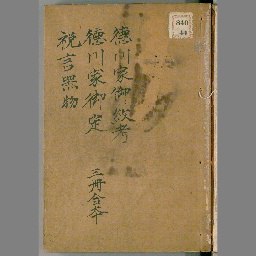 德川家御紋考
德川家御定
祝言器物
三冊合本
840
44